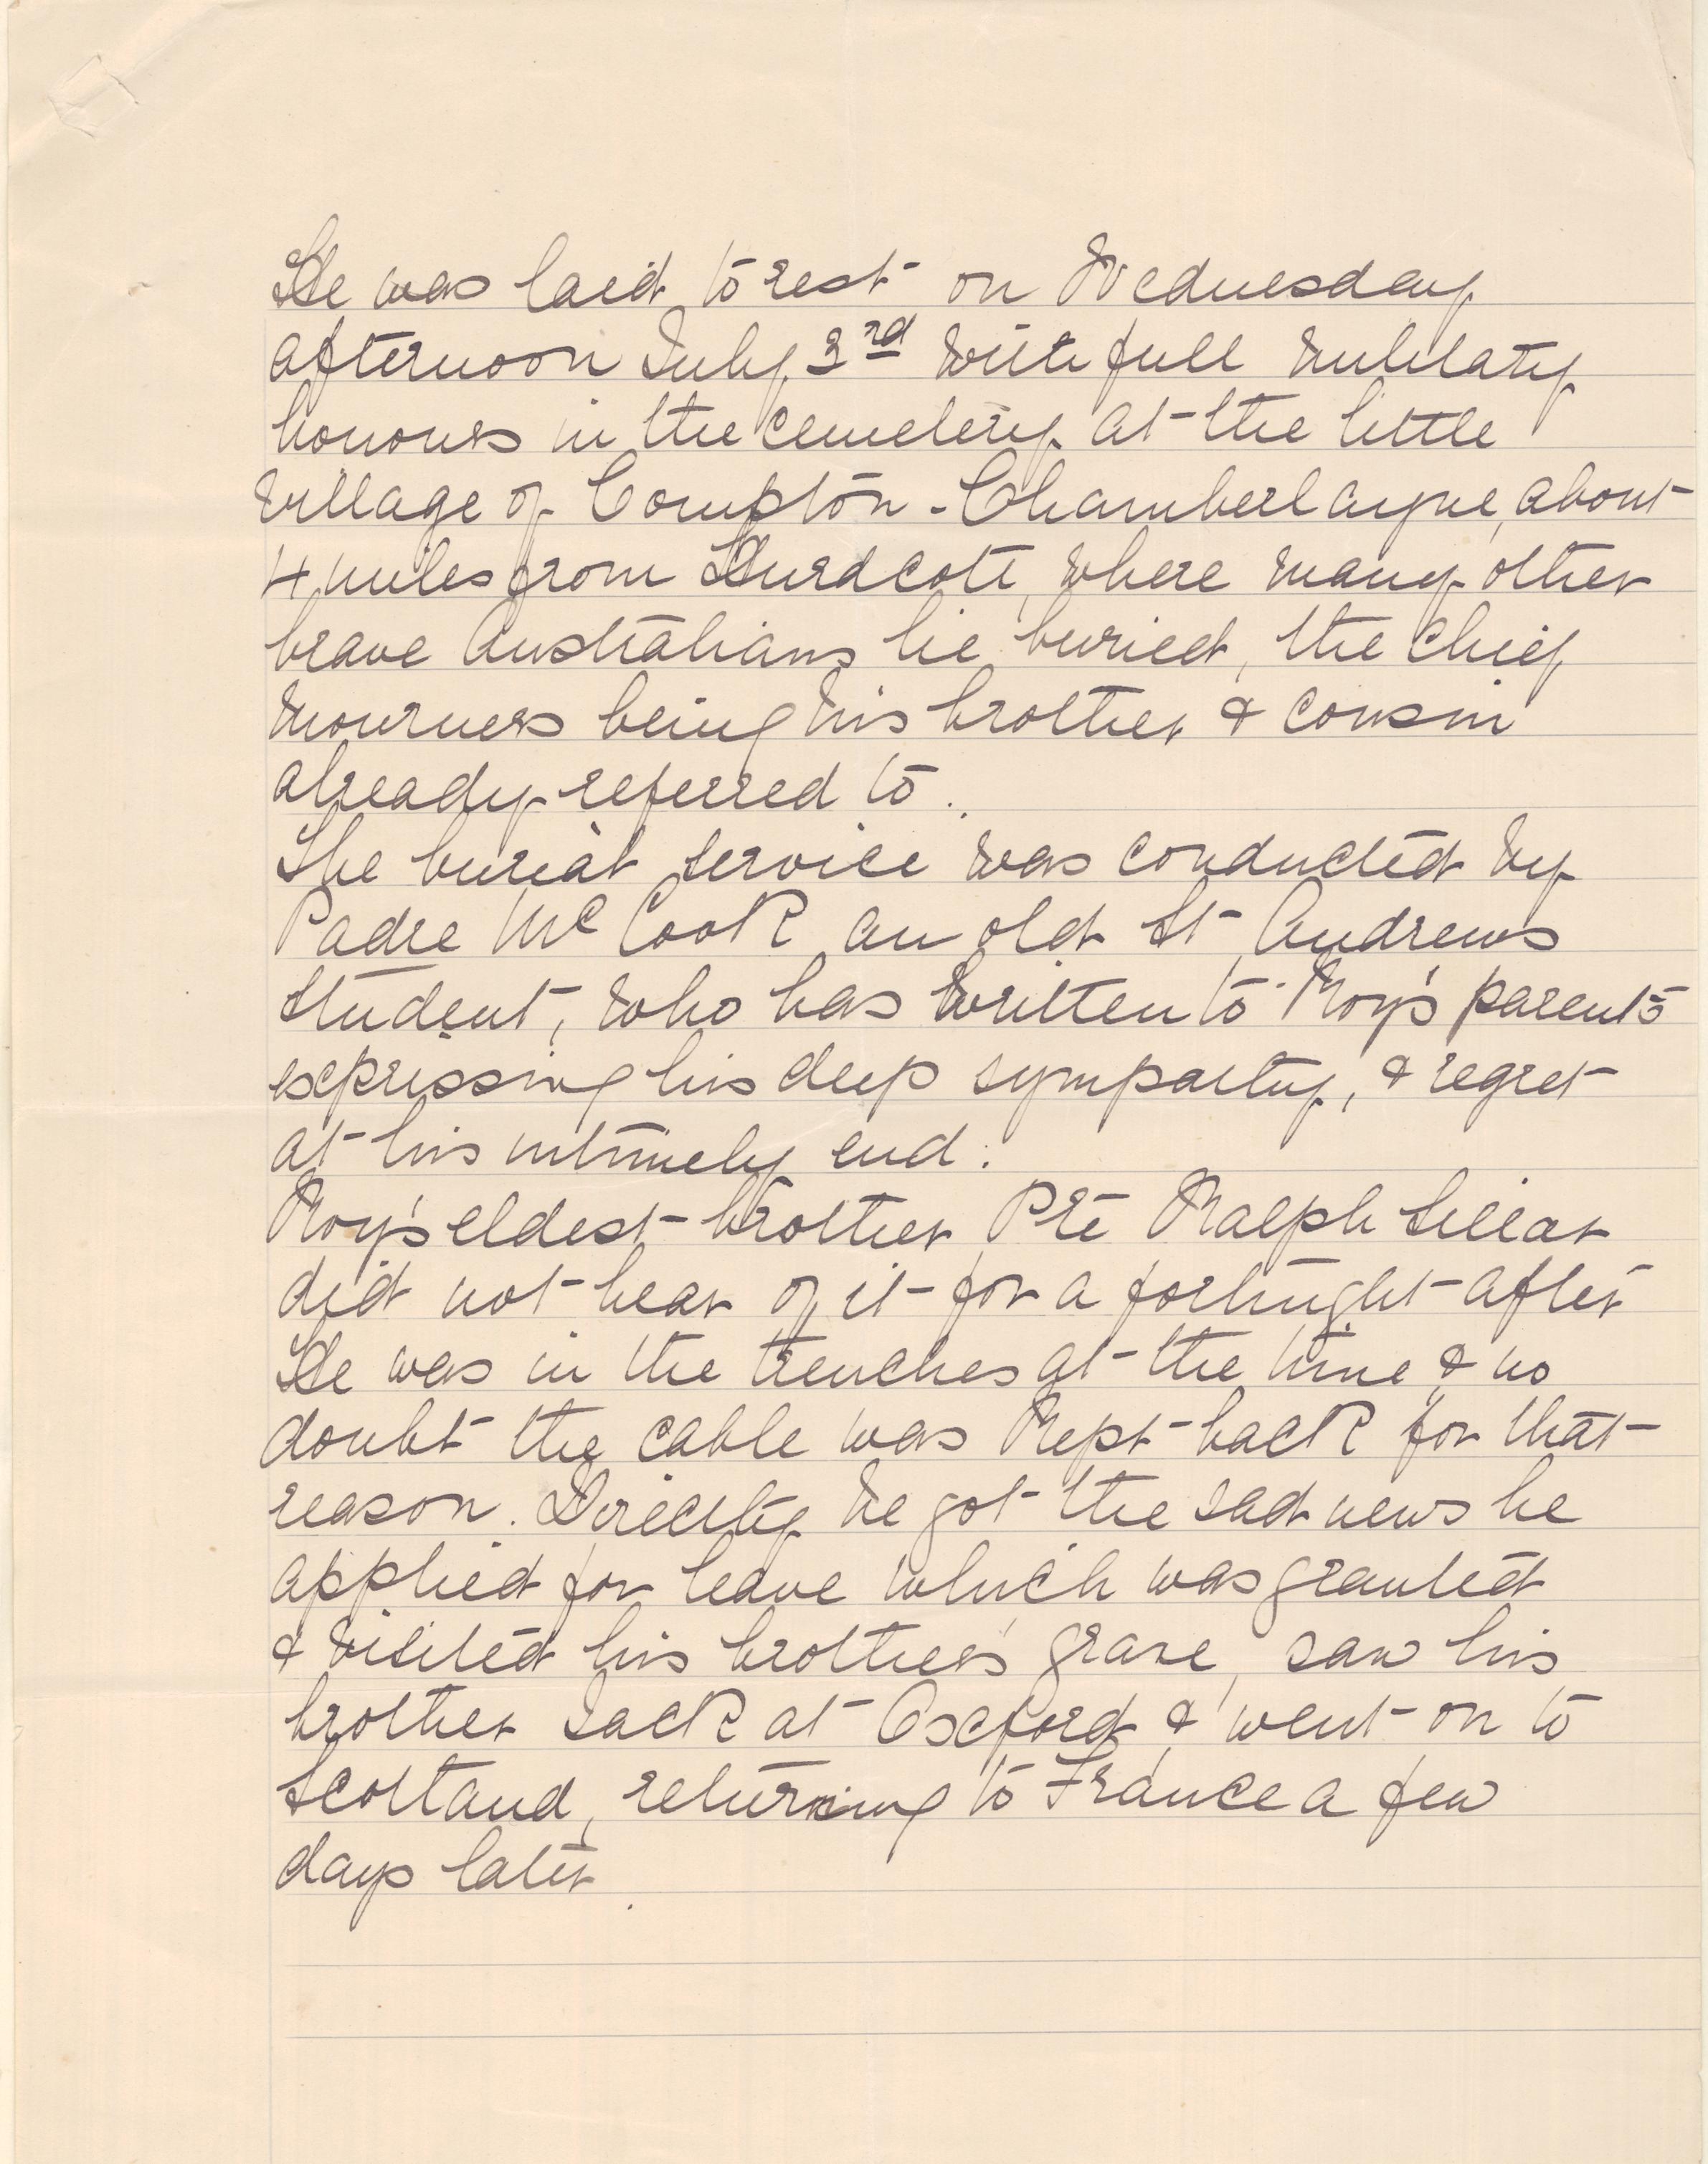 He was laid to rest on Wednesday
afternoon July 3rd with full military
honours in the cemetery at the little
village of Compton-Chamberlayne, about
4 miles from Hurdcott, where many other
brave Australians lie buried, the chief
mourners being his brother & cousin
already referred to.
The burial service was conducted by
Padre McCook an old St Andrews
student, who has written to Roy's parents
expressing his deep sympathy, & regret
at his untimely end.
Roy's eldest brother Pte Ralph Sillar
did not hear of it for a fortnight after
He was in the trenches at the time & no
doubt the cable was kept back for that
reason. Directly he got the sad news he
applied for leave which was granted
& visited his brother's grave, saw his
brother Jack at Oxford & went on to
Scotland, returning to France a few
days later.